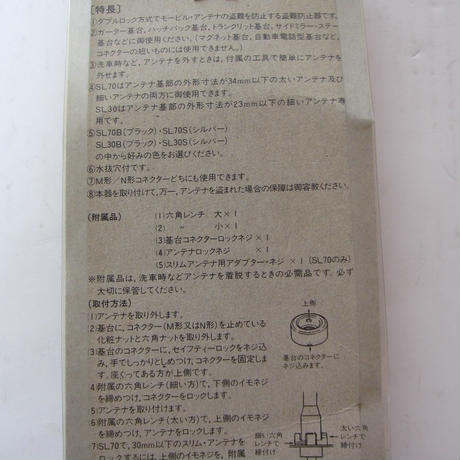 [特長]
①ダブルロック方式でモービル・アンテナの盗難を防止する盗難防止器です。
②ガーター基台、ハッチバック基台、トランクリット基台、サイドミラー・ステー
基台などに御使用ください。(マグネット基台、自動車電話型基台など、
コネクターの短いものには使用できません。)
③洗車時など、アンテナを外すときは、付属の工具で簡単にアンテナを
外せます。
④SL70はアンテナ基部の外形寸法が34mm以下の太いアンテナ及び
細いアンテナの両方に御使用できます。
SL30はアンテナ基部の外形寸法が23mm以下の細いアンテナ専
用です。
⑤SL70B(ブラック)・SL70S(シルバー)
SL30B(ブラック)・SL30S(シルバー)
の中から好みの色をお選びください。
⑥水抜穴付です。
⑦M形/N形コネクターどちにも使用できます。
⑧本器を取り付けて、万一、アンテナを盗まれた場合の保障は御容赦ください。
(附属品)
(1)六角レンチ 大×1
(2) 〃 小×1
(3)基台コネクターロックネジ×1
(4)アンテナロックネジ ×1
(5)スリムアンテナ用アダプター・ネジ ×1(SL70のみ)
※附属品は、洗車時などアンテナを着脱するときの必需品です。必ず
大切に保管してください。
(取付方法)
(1)アンテナを取り外します。
(2)基台に、コネクター(M形又はN形)を止めている
化粧ナットと六角ナットを取り外します。
(3)基台のコネクターに、セイフティーロックをネジ込
み、手でしっかりとしめつけ、コネクターを固定しま
す。座ぐってある方が上側です。
4)附属の六角レンチ(細い方)で、下側のイモネジ
を締めつけ、コネクターをロックします。
5)アンテナを取り付けます。
6)附属の六角レンチ(太い方)で、上側のイモネジ
を締めつけ、アンテナをロックします。
7)SL70で、30mm以下のスリム・アンテナを
ロックするには、上側のイモネジを、附属
上側
基台のコネクターに
ネジ込みます。
細い六角
レンチで
締付け
太い六角
レンチで
締付け